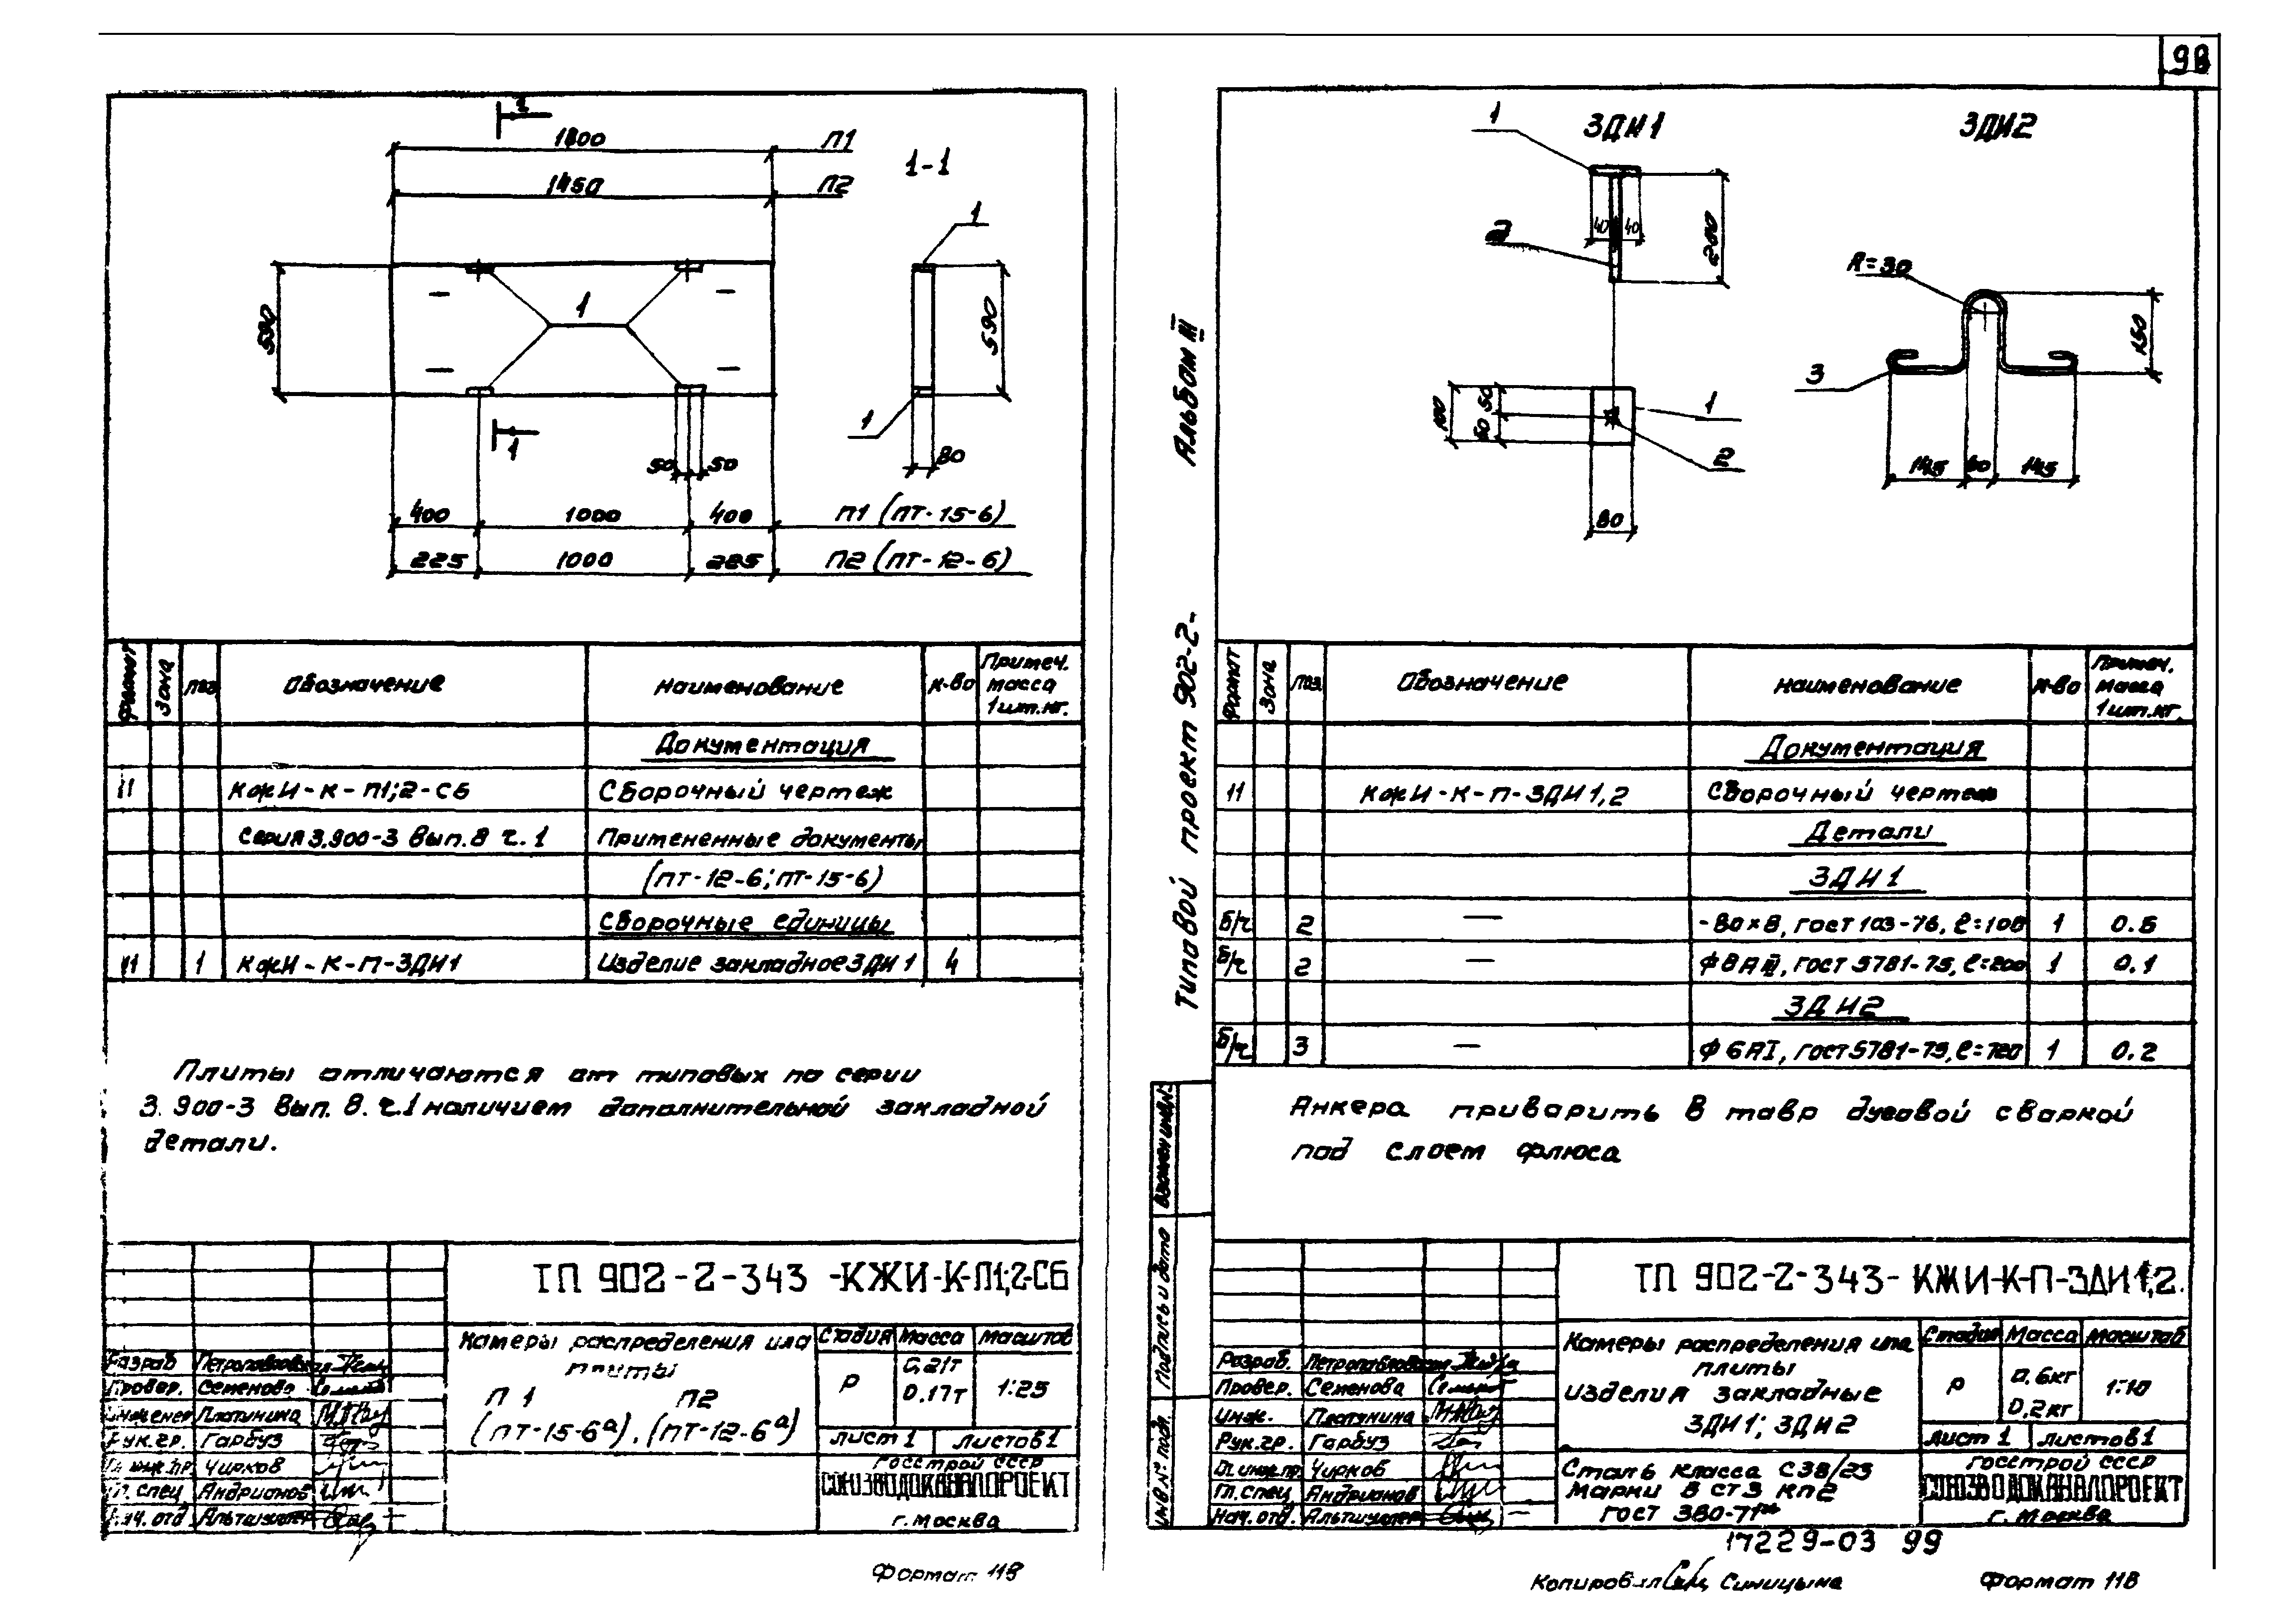 98
1
1800
П1
1450
П2
1-1
1
590
1
590
1
1
50
50
80
400
1000
400
П1 (ПТ-15-6)
225
1000
225
П2 (ПТ-12-6)
Формат
Зона
поз
Обозначение
Наименование
к-во
Примеч.
масса
1шт.кг.
Документация
11
КЖИ-К-П1;2-СБ
Сборочный чертеж
Серия 3.900-3 Вып. 8 ч. 1
Примененные документы
(ПТ-12-6; ПТ-15-6)
Сборочные единицы
11
1
КЖИ-К-П-ЗДИ1
Изделие закладное ЗДИ 1
4
Плиты отличаются от типовых по серии
3.900-3 Вып. 8. ч.1 наличием дополнительной закладной
детали.
ТП 902-2-343 -КЖИ-К-П1;2-СБ
Камеры распределения ила
плиты
П 1 П2
(ПТ-15-6а), (ПТ-12-6а)
Стадия
Масса
Масштаб
Р
0,21т
0.17т
1:25
Лист 1
Листов 1
Госстрой СССР
СОЮЗВОДОКАНАЛПРОЕКТ
г. Москва
Разраб
Петропавловская
Провер.
Семенова
Инженер
Платунина
Рук.гр.
Гарбуз
Гл. инж. пр.
Чирков
Гл. спец
Андрианов
Нач. отд
Альтшулер
Формат 11В
Альбом III
Типовой проект 902-2-
Взамен инв.№
Подпись и дата
Инв № подл.
1
ЗДИ 1
ЗДИ2
40
40
2
200
R=30
150
3
145
60
145
100
50
50
1
2
80
Формат
Зона
поз.
Обозначение
Наименование
к-во
Примеч.
масса
1шт.кг.
Документация
11
КЖИ-К-П-ЗДИ 1,2
Сборочный чертеж
Детали
ЗДИ 1
Б/ч
2
—
-80×8, гост 103-76, ℓ=100
1
0.5
Б/ч
2
—
Ф8АIII, гост 5781-75, ℓ=200
1
0.1
ЗДИ2
Б/ч
3
—
Ф6АI, гост 5781-75, ℓ=720
1
0.2
Анкера приварить в тавр дуговой сваркой
под слоем флюса
ТП 902-2-343- КЖИ-К-П-ЗДИ1,2.
Камеры распределения ила
плиты
Изделия закладные
ЗДИ 1; ЗДИ 2
Стадия
Масса
Масштаб
Р
0,6кг
0,2кг
1:10
Лист 1
Листов 1
Сталь класса С38/23
марки В СТ3 кп2
ГОСТ 380-71*
Госстрой СССР
СОЮЗВОДОКАНАЛПРОЕКТ
г. Москва
Разраб.
Петропавловская
Провер.
Семенова
Инж.
Платунина
Рук.гр.
Гарбуз
Гл. инж. пр.
Чирков
Гл. спец
Андрианов
Нач. отд.
Альтшулер
17229-03 99
Копировал Синицына
Формат 11В